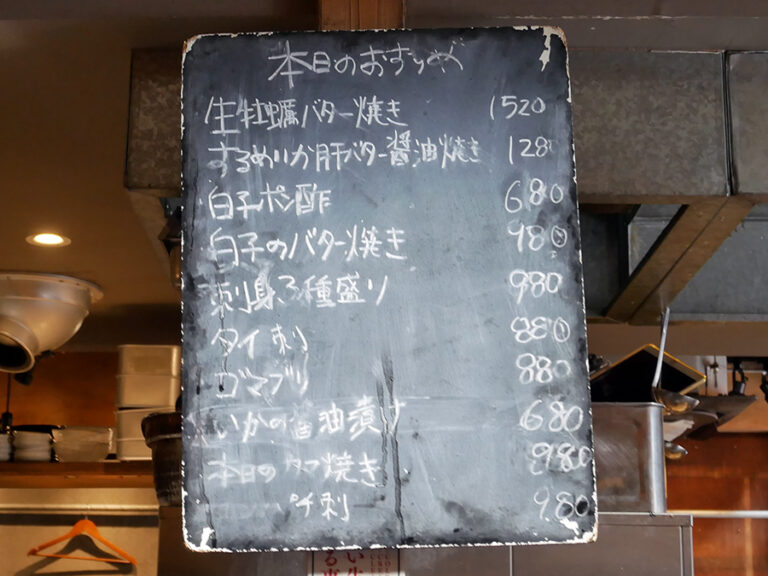 本日のおすすめ
生牡蠣バター焼き 1520
するめいか肝バター醤油焼き 1280
白子ポン酢 680
白子のバター焼き 980
刺身3種盛り 980
タイ刺 880
ゴマブリ 880
いかの醤油漬け 680
本日の 焼き 980
刺 980